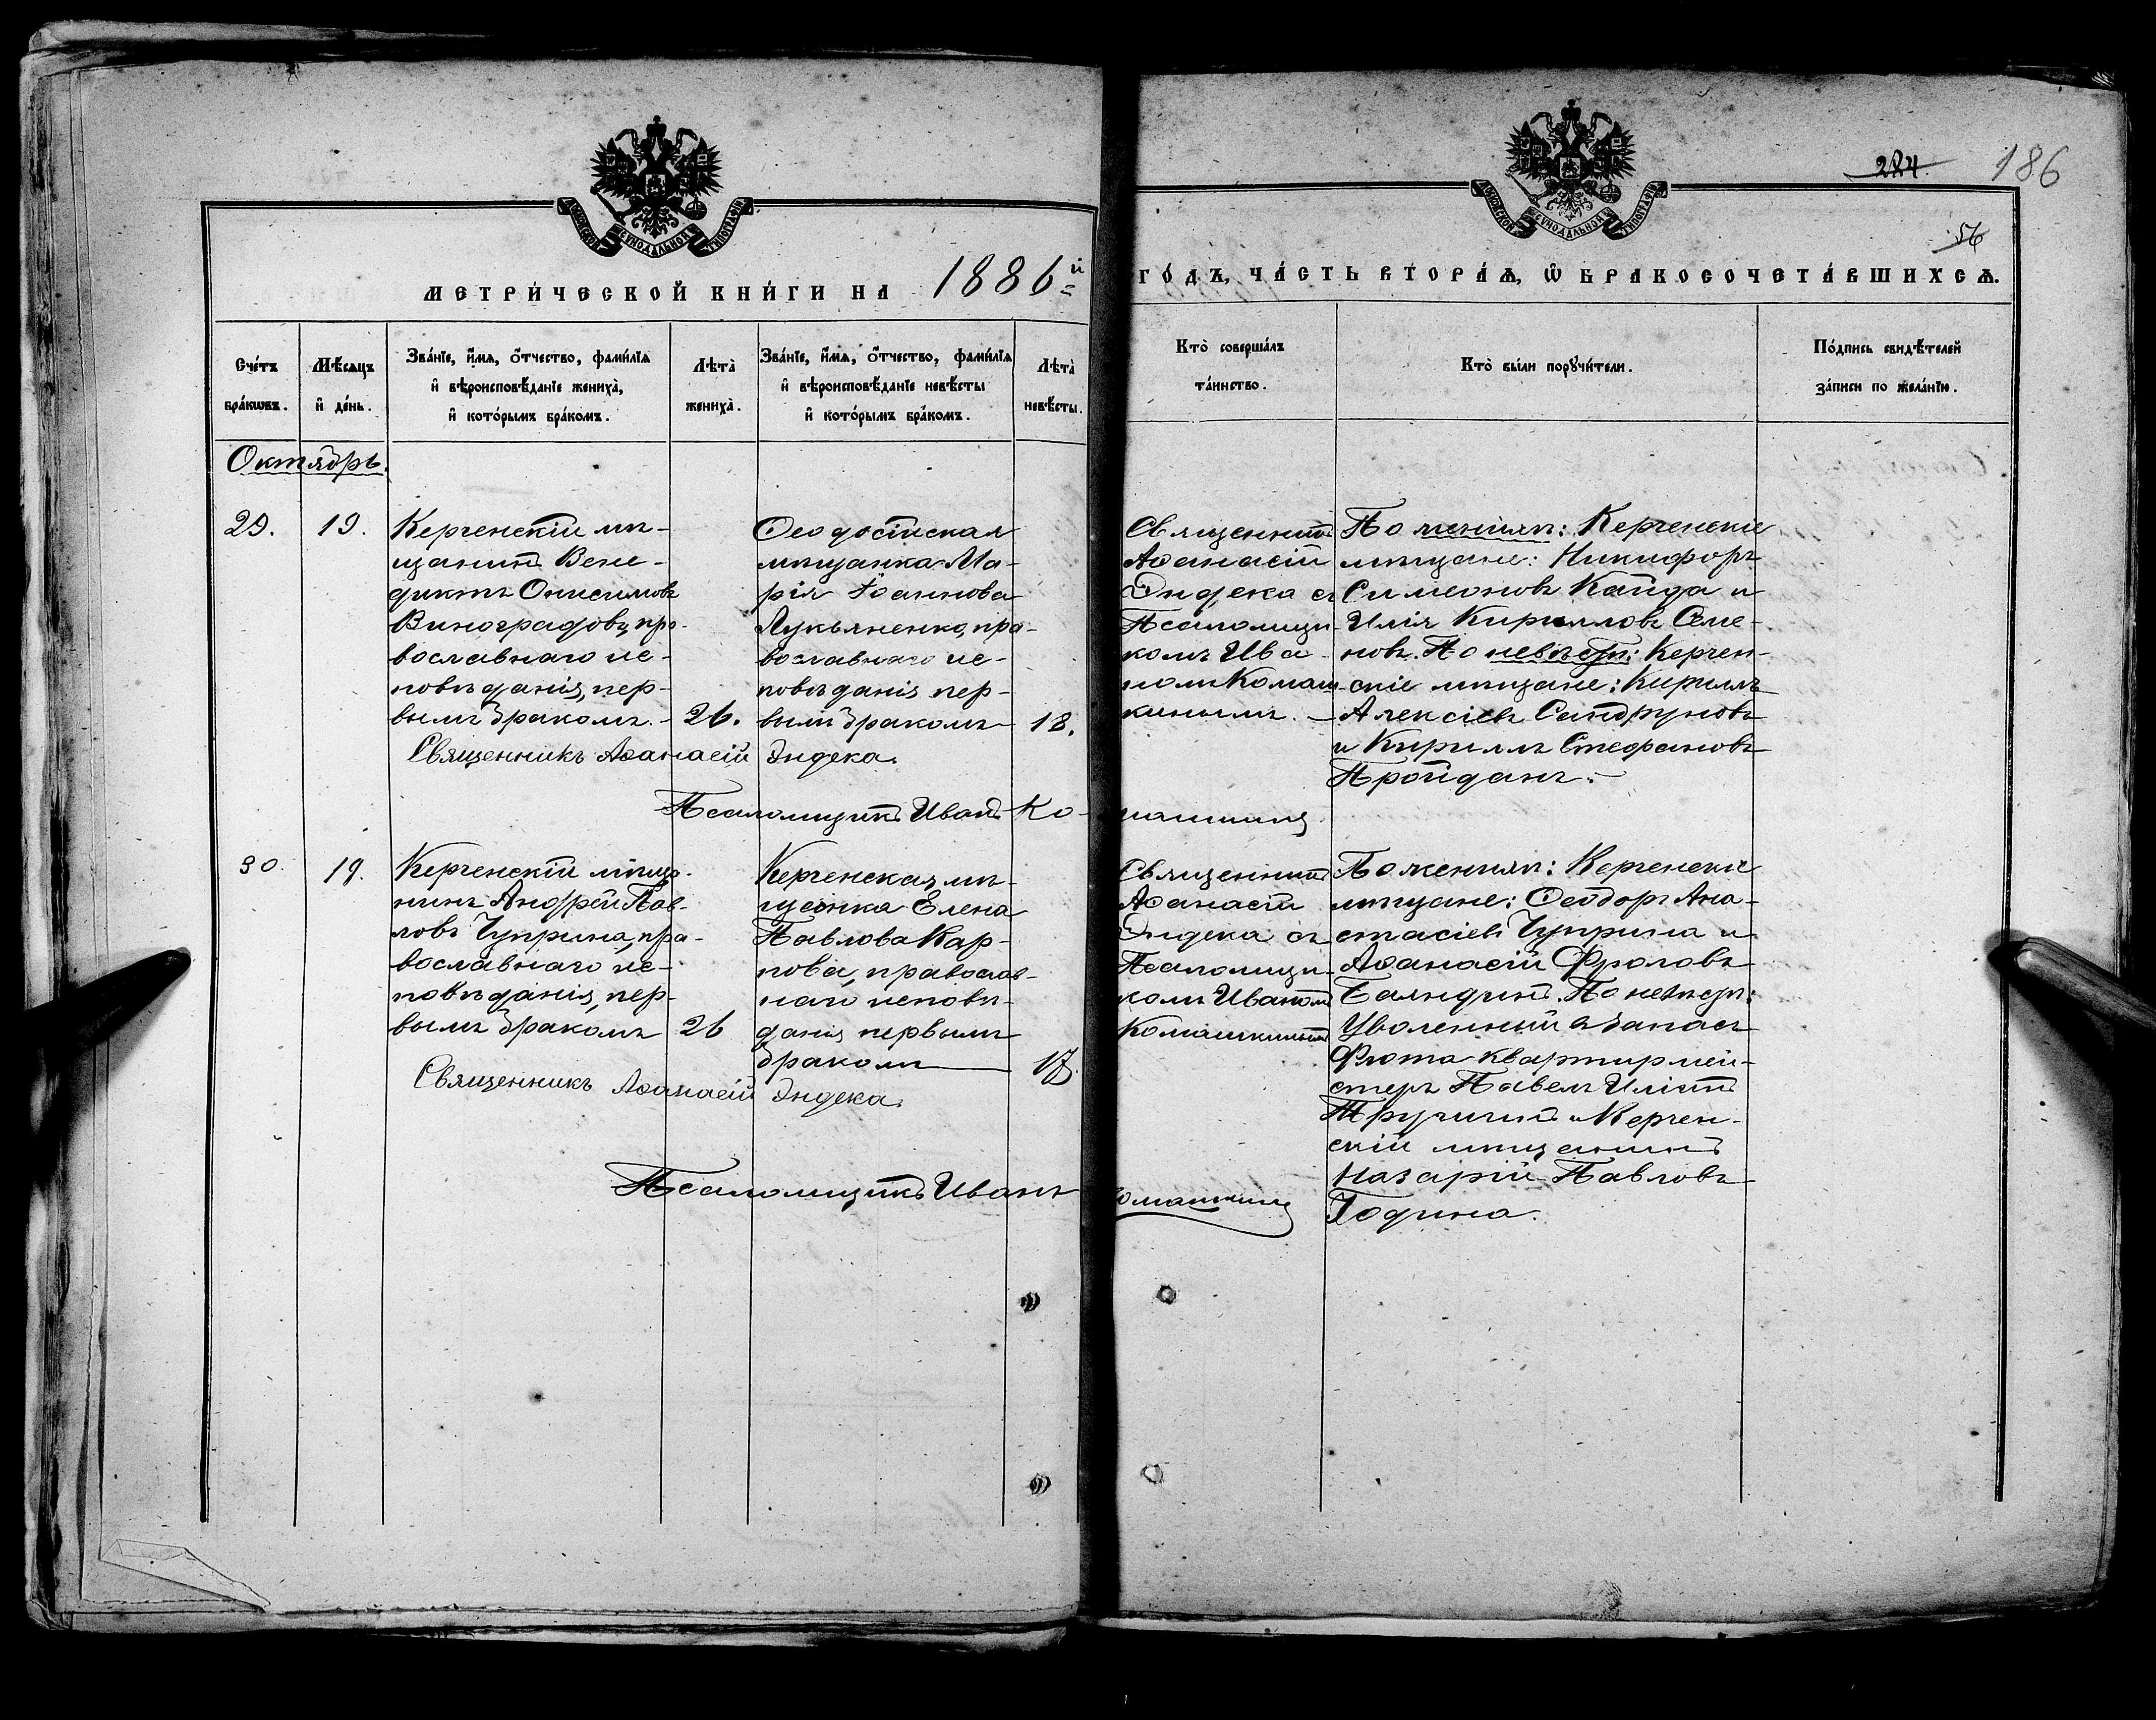 224. 186
56
МОСКОВСКОЙ СѴНОДАЛЬНОЙ ТИПОГРАФІИ
МОСКОВСКОЙ СѴНОДАЛЬНОЙ ТИПОГРАФІИ
МЕТРИ́ЧЕСКОЙ КНИ́ГИ НА 1886й
ГО́ДЪ, ЧА́СТЬ ВТОРА́Ѧ, Ѡ БРАКОСОЧЕТА́ВШИХСѦ.
Сче́тъ
бра́кѡвъ.
Мѣ́сяцъ
и҆ де́нь.
Зва́нїе, и҆́мѧ, о҆́тчество, фами́лїѧ
и҆ вѣроисповѣ́данїе жениха̀,
и҆ кото́рымъ бра́комъ.
Лѣта̀
жениха̀.
Зва́нїе, и҆́мѧ, о҆́тчество, фами́лїѧ
и҆ вѣроисповѣ́данїе невѣ́сты
и҆ кото́рымъ бра́комъ.
Лѣта̀
невѣ́сты.
Кто̀ соверша́лъ
та́инство.
Кто̀ бы́ли порꙋчи́тели.
По́дпись свидѣ́телей
за́писи по жела́нїю.
Октябрь.
29.
19.
Керченскій мѣ-
щанинъ Вене-
диктъ Онисимовъ
Виноградовъ, пра-
вославнаго ис-
повѣданія, пер-
вымъ бракомъ. -
26.
Ѳеодосійская
мѣщанка Ма-
рія Іоаннова
Лукьяненко, пра-
вославнаго ис-
повѣданія пер-
вымъ бракомъ
18.
Священникъ
Аѳанасій
Эндека съ
Псаломщи-
комъ Ива-
номъ Комаш-
кинымъ. -
По женихѣ: Керченскіе
мѣщане: Никифоръ
Симеоновъ Кайда и
Илія Кирилловъ Семе-
новъ. По невѣстѣ: Керчен-
скіе мѣщане: Кириллъ
Алексіевъ
и Кириллъ Стефановъ
Пройданъ. -
Священникъ Аѳанасій Эндека.
Псаломщикъ Иванъ Комашкинъ
30.
19.
Керченскій мѣща-
нинъ Андрей Пав-
ловъ Чуприна, пра-
вославнаго ис-
повѣданія, пер-
вымъ бракомъ
26
Керченская мѣ-
щанка Елена
Павлова Кар-
пова, православ-
наго исповѣ-
данія первымъ
бракомъ
17.
Священникъ
Аѳанасій
Эндека съ
Псаломщи-
комъ Иваномъ
Комашкинымъ
По женихѣ: Керченскіе
мѣщане: Ѳеодоръ Ана-
стасіевъ Чуприна и
Аѳанасій Фроловъ
Баландинъ. По невѣстѣ:
Уволенный въ запасъ
Флота квартирмей-
стеръ Павелъ Иліинъ
Тручинъ и Керчен-
скій мѣщанинъ
Назарій Павловъ
Година.
Священникъ Аѳанасій Эндека.
Псаломщикъ Иванъ Комашкинъ